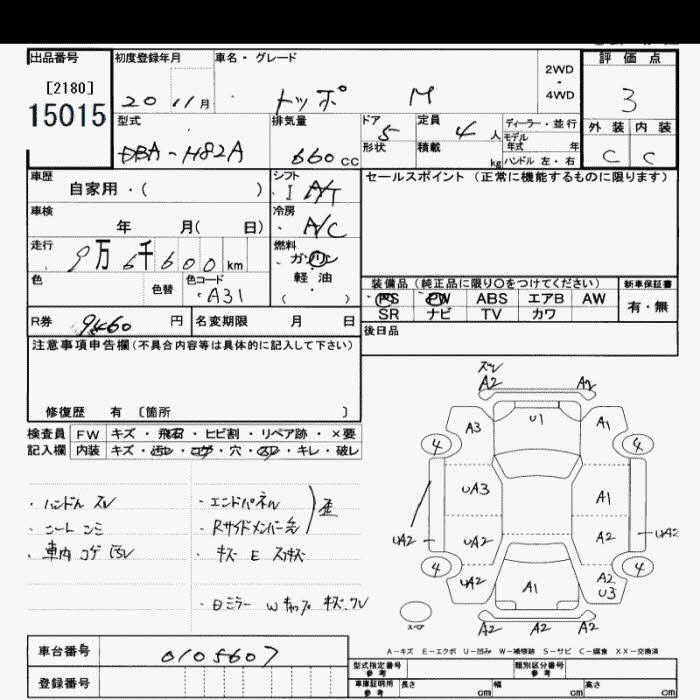 出品番号 初度登録年月 車名・グレード 評価点
[2180] 2WD
15015 20 11月 トッポ M 4WD 3
型式 排気量 ドア 5 定員 4人 ディーラー・並行 外装 内装
DBA-H82A 660cc 形状 積載 kg モデル年式 年 C C
ハンドル 左・右
車歴 シフト セールスポイント (正常に機能するものに限ります)
自家用・( ) I A/T
車検 冷房
年 月( 日) A/C
走行 燃料
9万6千600km ガソリン
色 色替 色コード 軽油 装備品(純正品に限り○をつけてください) 新車保証書
A31 ( ) PS PW ABS エアB AW 有・無
R券 9460円 名変期限 月 日 SR ナビ TV カワ
注意事項申告欄(不具合内容等は具体的に記入して下さい) 後日品
修復歴 有 〔箇所 〕
検査員 FW キズ・飛石・ヒビ割・リペア跡・×要
記入欄 内装 キズ・汚レ・コゲ・穴・スレ・キレ・破レ
・ハンドル スレ ・エンドパネル
・シート シミ ・Rサイドメンバー 歪
・車内 コゲ 汚レ ・キズ E
・日ミラー W キャップ キズ.ワレ
ズレ
A2 A2
U1
A3 A1
4 4
UA3 A1
UA2 UA2 A2 UA2
4 4
UA2 A1 A2
U3
スペア
A2 A2 A2
A-キズ E-エクボ U-凹み W-補修跡 S-サビ C-腐食 XX-交換済
車台番号 0105607 型式指定番号 参考 類別区分番号 参考
登録番号 車庫証明用 参考 長さ cm 幅 cm 高さ cm